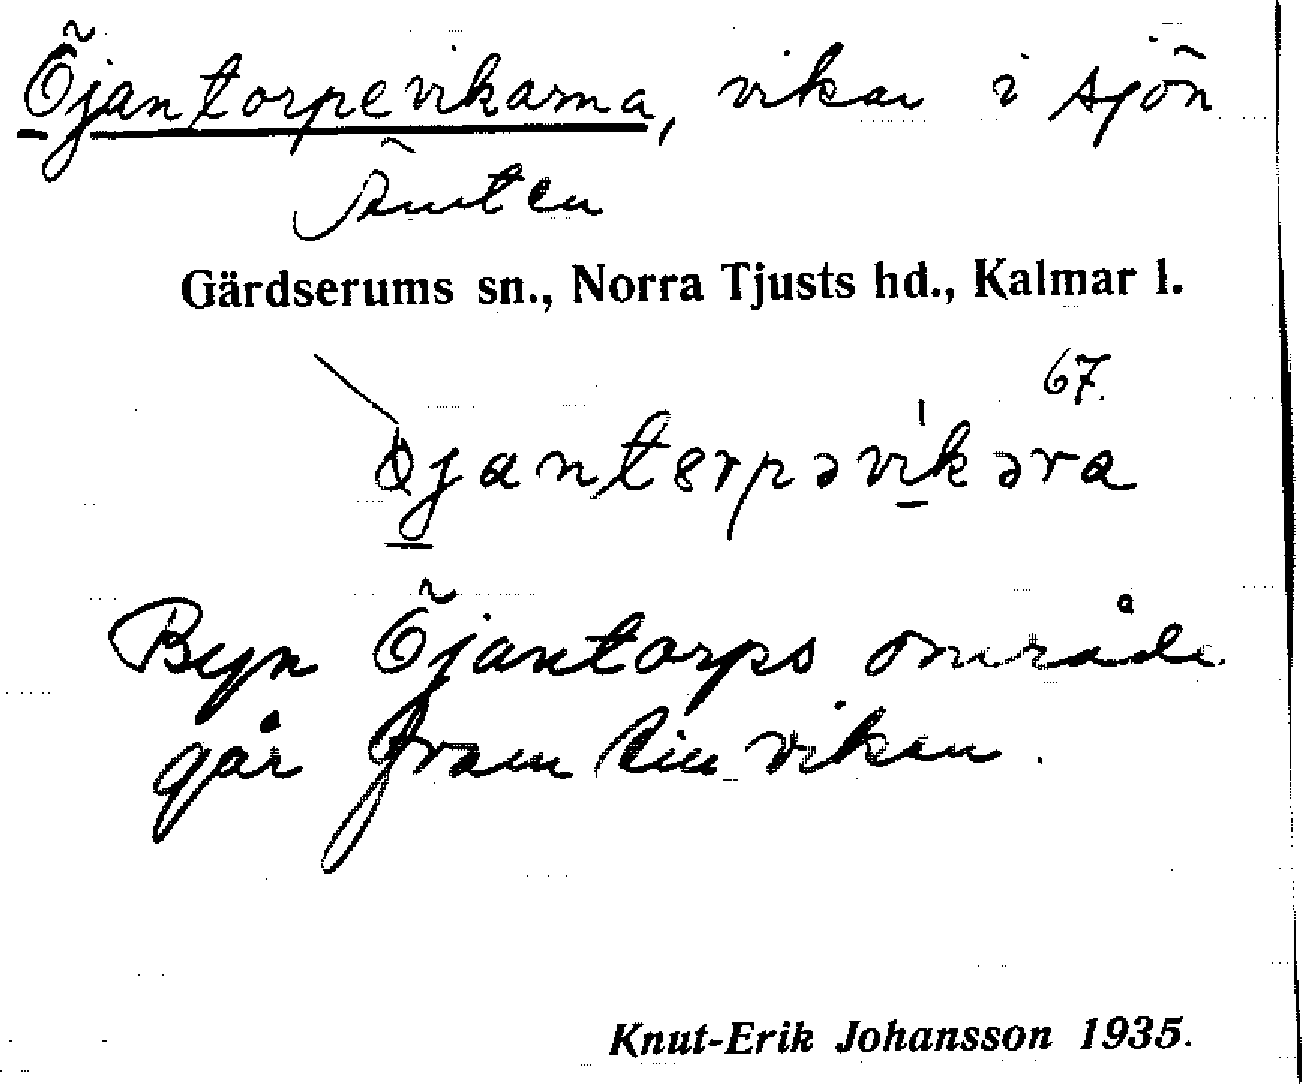 Öjantorpevikarna, vikar i sjön
Önten
Gärdserums sn., Norra Tjusts hd., Kalmar l.
67.
Byn Öjantorps område
går fram till viken.
Knut-Erik Johansson 1935.